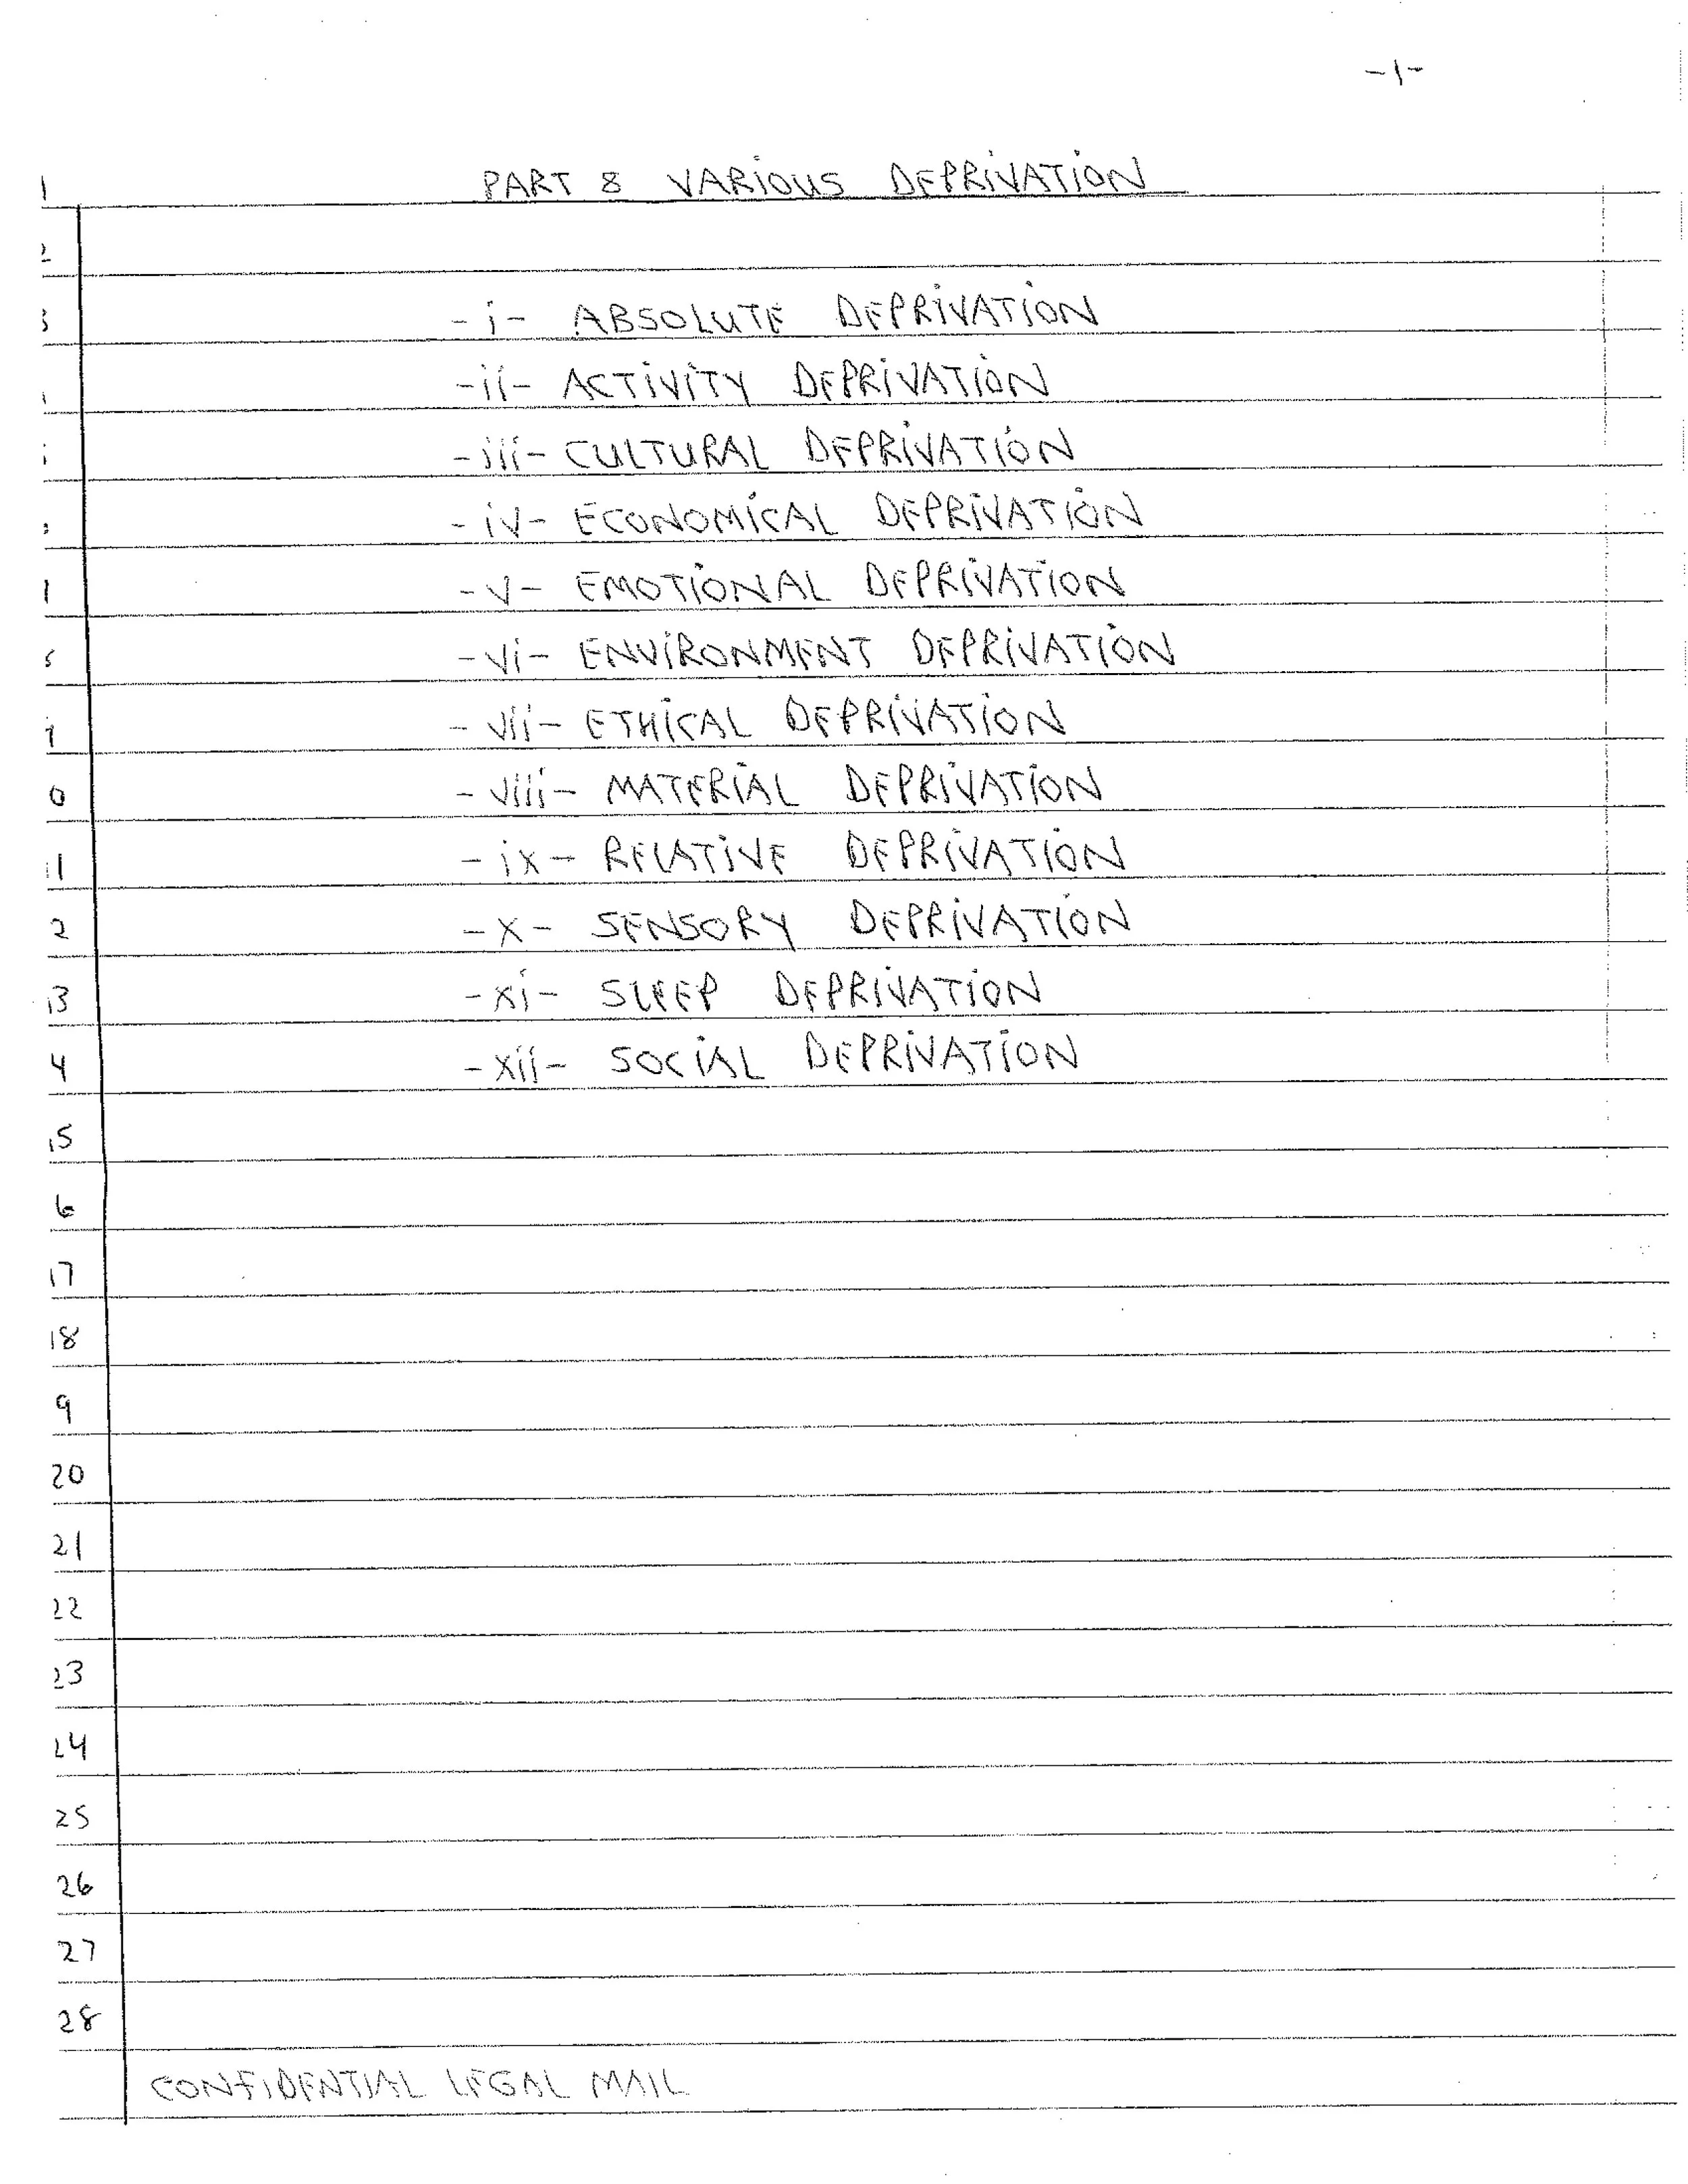 -1-
1 PART 8 VARIOUS DEPRIVATION
2
3 -i- ABSOLUTE DEPRIVATION
-ii- ACTIVITY DEPRIVATION
-iii- CULTURAL DEPRIVATION
-iv- ECONOMICAL DEPRIVATION
-v- EMOTIONAL DEPRIVATION
-vi- ENVIRONMENT DEPRIVATION
-vii- ETHICAL DEPRIVATION
0 -viii- MATERIAL DEPRIVATION
11 -ix- RELATIVE DEPRIVATION
2 -x- SENSORY DEPRIVATION
13 -xi- SLEEP DEPRIVATION
4 -xii- SOCIAL DEPRIVATION
15
6
17
18
9
20
21
22
23
24
25
26
27
28
CONFIDENTIAL LEGAL MAIL